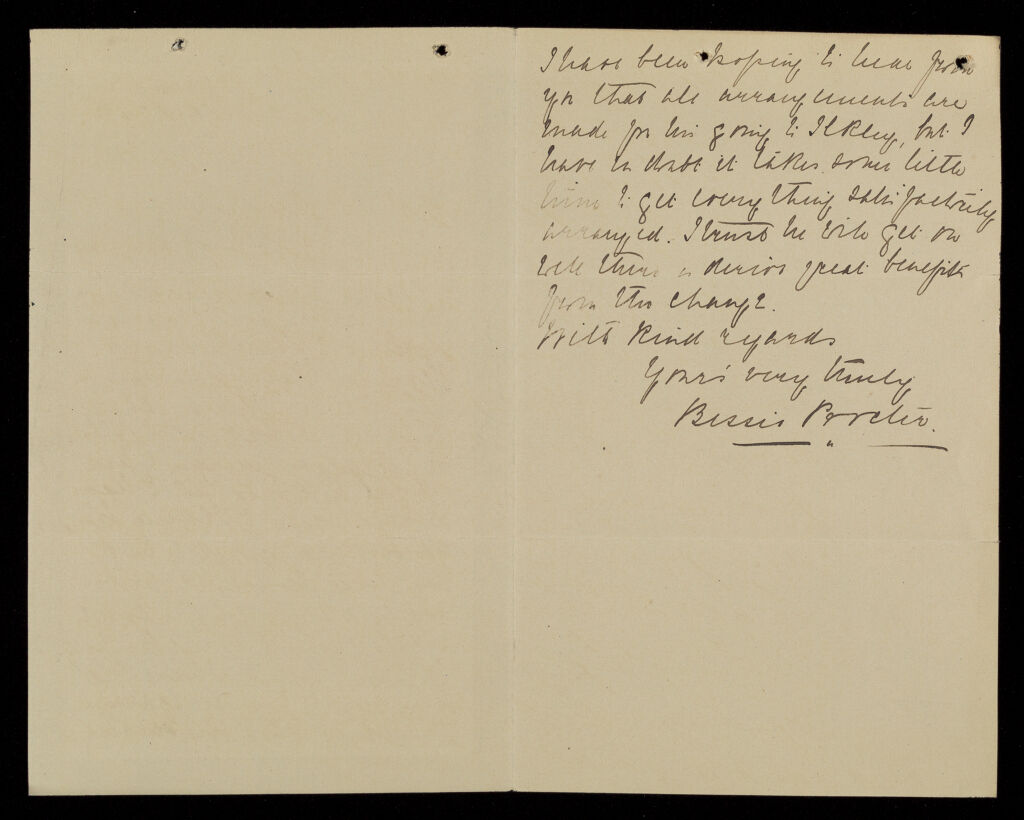 I have been hoping to hear from
you that all arrangements are
made for his going to Ilkley, but I
have no doubt it takes some little
time to get everything satisfactorily
arranged. I trust he will get on
well there & derive great benefit
from the change.
With kind regards
Yours very truly
Bessie Procter.